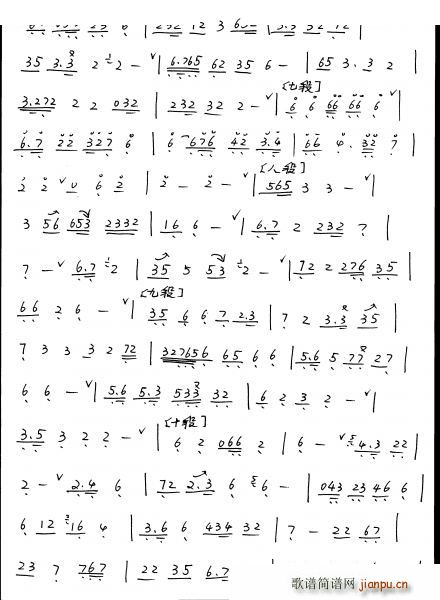 35 3.3 2 2 - | 6.765 62 35 6 - | 65 3.3 2
[七段]
3.272 2 2 032 | 232 32 2 - | 6 6 66 66 6
6.7 22 327 6 | 6 676 42 3.4 | 66 4.32 7 |
[八段]
2 2 0 6 2 | 2 - 2 - | 565 3 3 - |
3 56 653 2332 | 16 6 - | 6.7 2 232 7 |
7 - 6.7 2 | 35 5 53 2 - | 72 2 276 35 |
[九段]
66 2 6 - | 35 6 6 7 2.3 | 7 2 3.3 35 |
7 3 3 3 2 72 | 327656 65 6 6 | 5.6 5 77 27 |
6 6 - | 5.6 5.3 533 32 | 6 2 3 2 - |
[十段]
3.5 3 2 2 - | 6 2 066 2 | 6 - 4.3 22 |
2 - 2.4 6 | 72 2.3 6 6 - | 043 23 46 6 |
6 12 16 4 | 3.6 6 434 32 | 7 - 22 67 |
23 7 767 | 22 35 6.7
歌谱简谱网
jianpu.cn